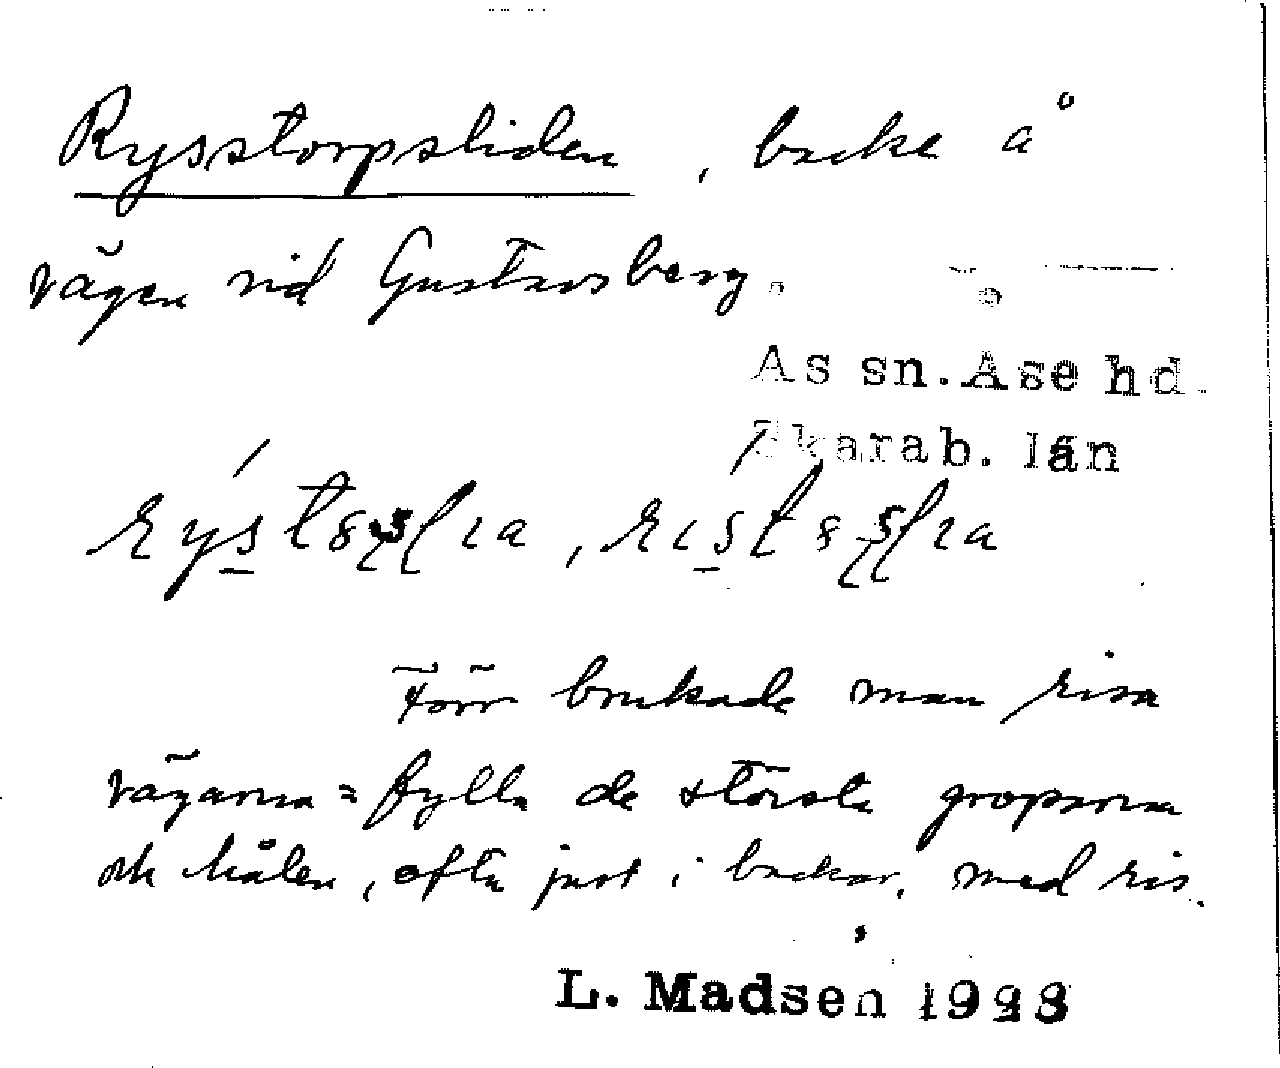 Rysstorpsliden, backe å
vägen vid Gustavsberg.
Ås sn. Åse hd.
Skarab. län
Förr brukade man risa
vägarna = fylla de största groparna
och hålen, ofta just i backar, med ris.
L. Madsen 1928